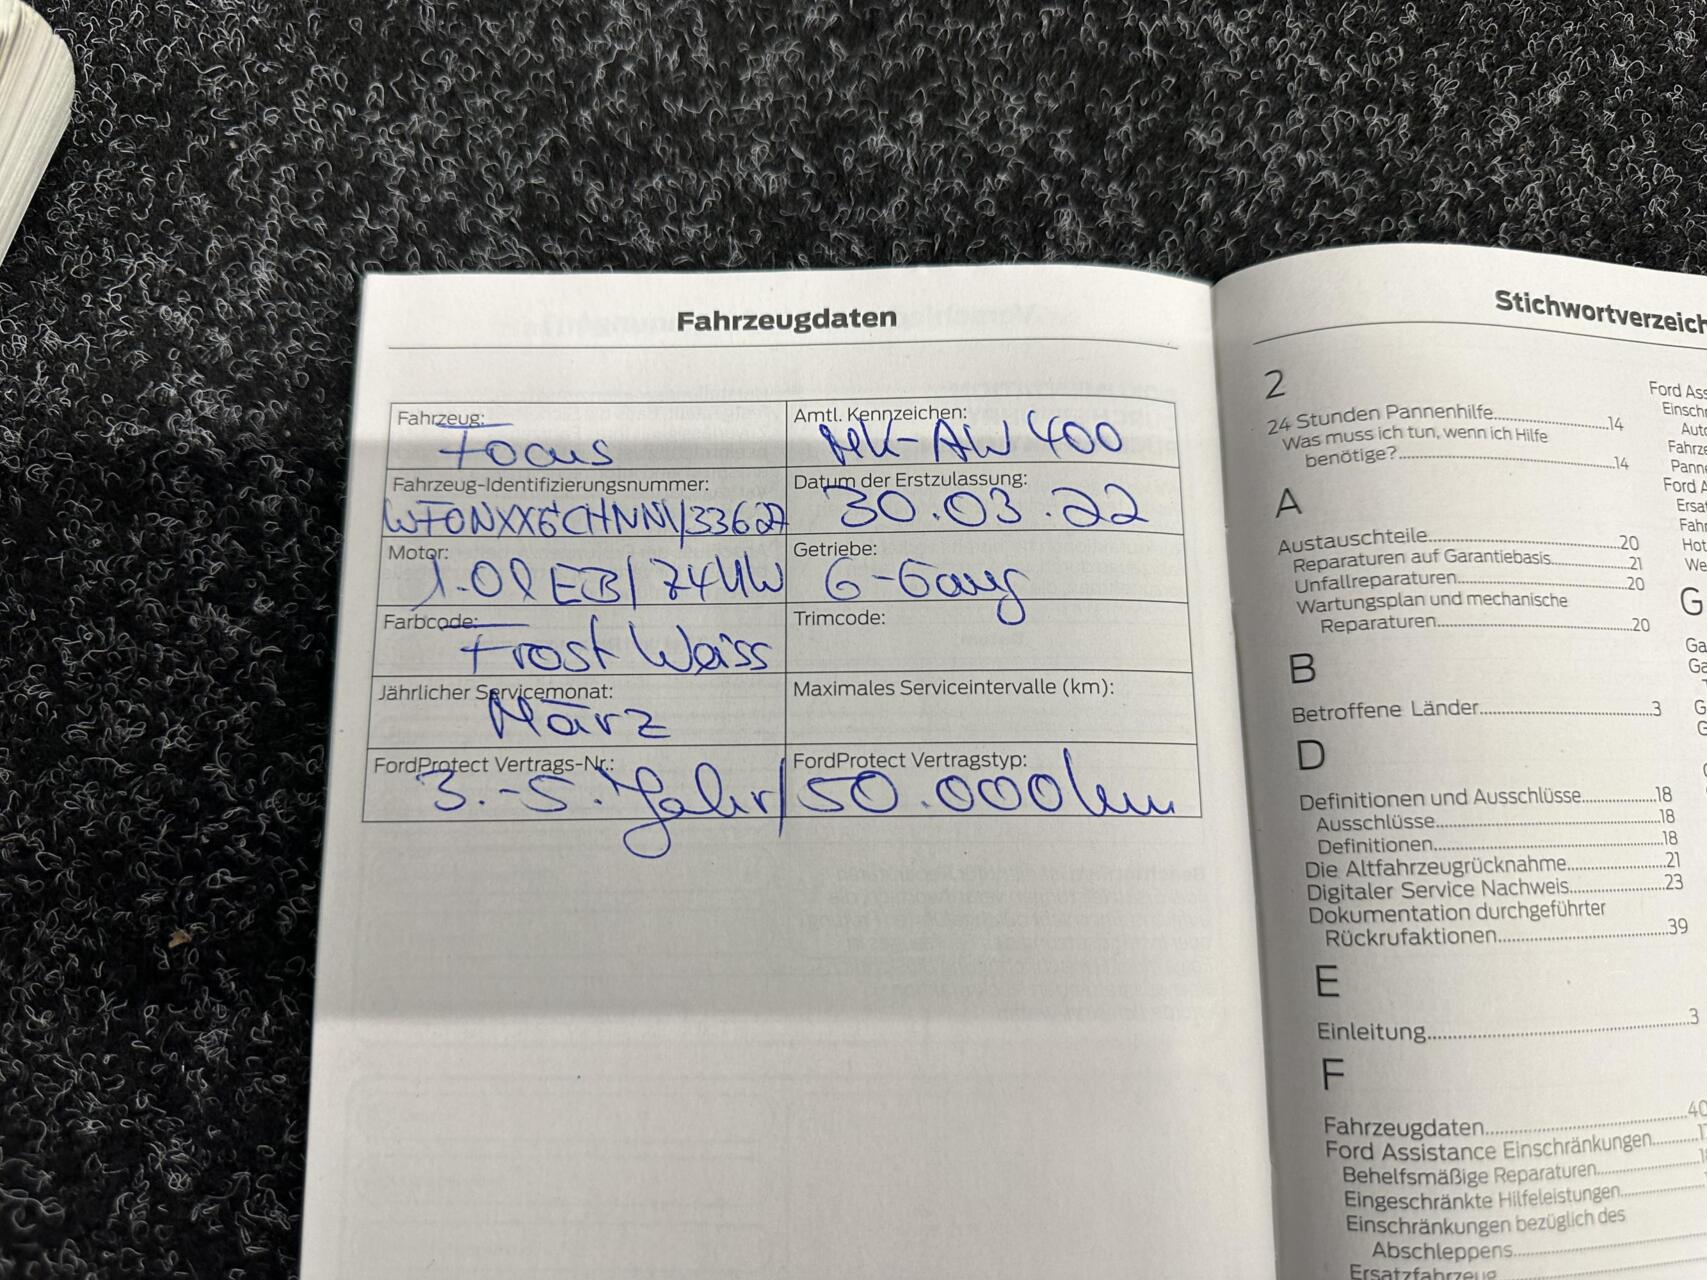 Fahrzeugdaten
Fahrzeug:
Focus
Amtl. Kennzeichen:
MK-AW 400
Fahrzeug-Identifizierungsnummer:
Datum der Erstzulassung:
30.03.22
Motor:
1.0l EB/74KW
Getriebe:
6-Gang
Farbcode:
Frost Weiss
Trimcode:
Jährlicher Servicemonat:
März
Maximales Serviceintervalle (km):
FordProtect Vertrags-Nr.:
FordProtect Vertragstyp:
3.-5. Jahr/50.000km
Stichwortverzeich
2
24 Stunden Pannenhilfe...14
Was muss ich tun, wenn ich Hilfe
benötige?...14
A
Austauschteile...20
Reparaturen auf Garantiebasis...21
Unfallreparaturen...20
Wartungsplan und mechanische
Reparaturen...20
B
Betroffene Länder...3
D
Definitionen und Ausschlüsse...18
Ausschlüsse...18
Definitionen...18
Die Altfahrzeugrücknahme...21
Digitaler Service Nachweis...23
Dokumentation durchgeführter
Rückrufaktionen...39
E
Einleitung...3
F
Fahrzeugdaten...40
Ford Assistance Einschränkungen...
Behelfsmäßige Reparaturen...
Eingeschränkte Hilfeleistungen...
Einschränkungen bezüglich des
Abschleppens...
Ersatzfahrzeug
Ford Ass
Einschr
Auto
Fahrze
Pann
Ford A
Ersa
Fahr
Hot
We
G
Ga
Ga